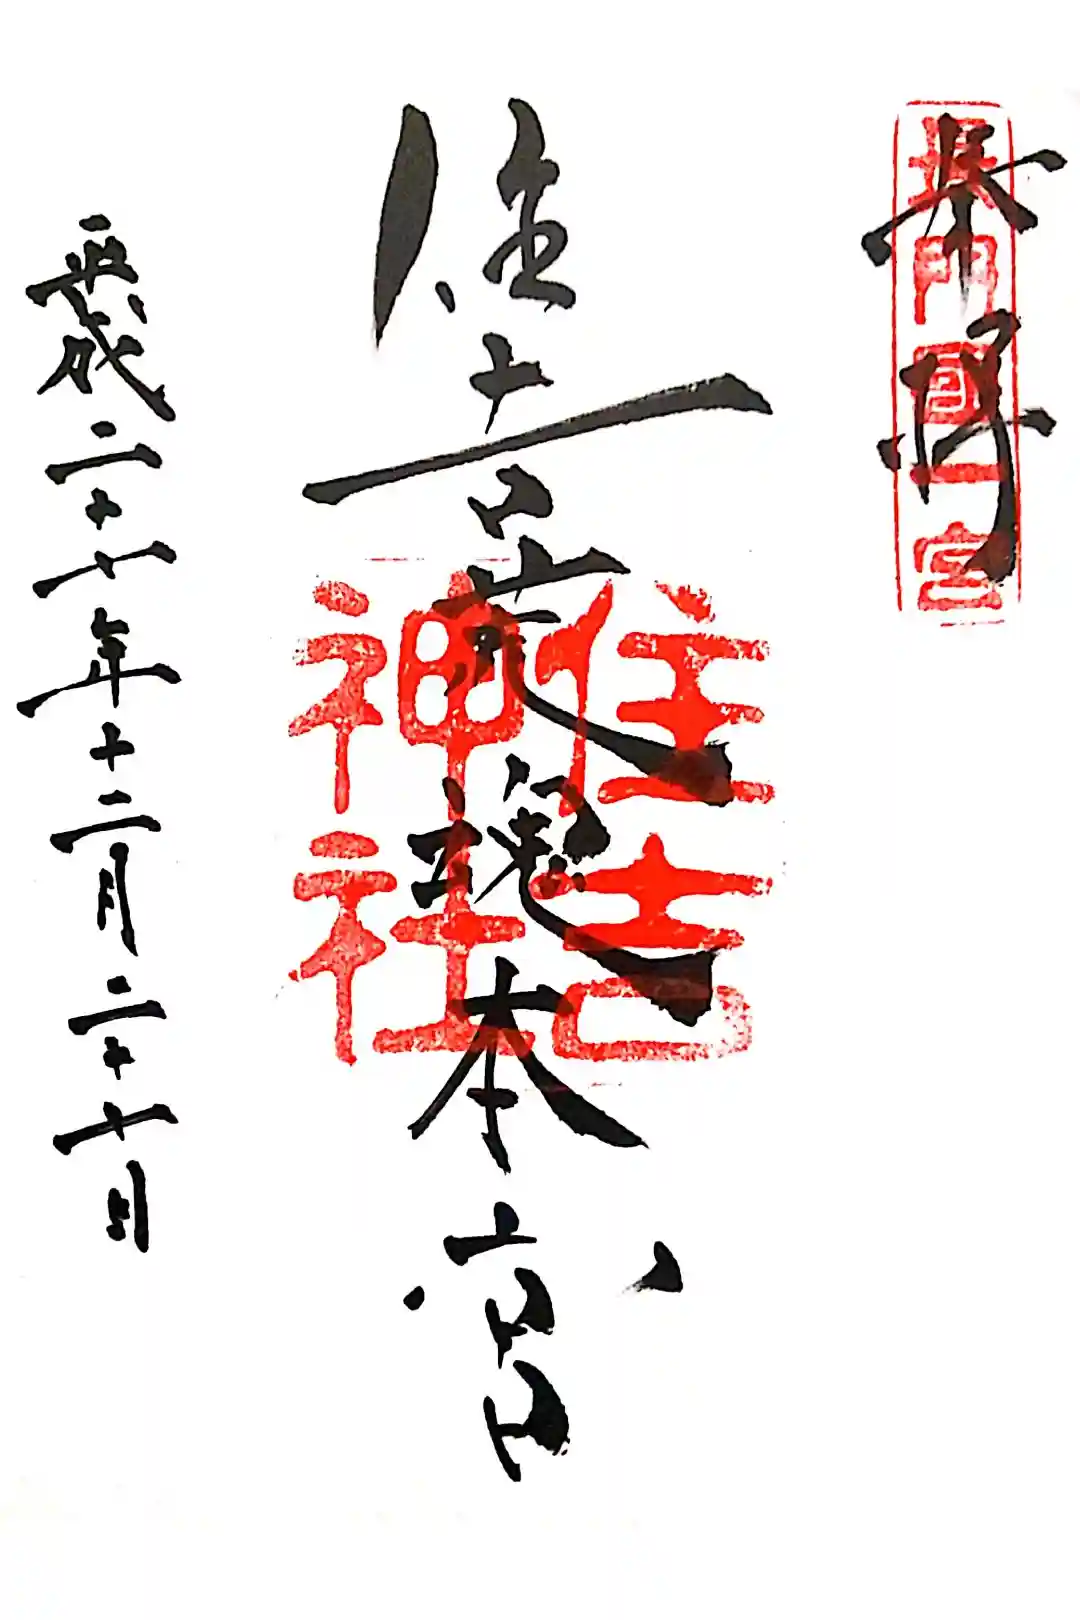 奉拝
長門國一宮
住吉荒魂本宮
住吉
神社
平成二十七年十二月二十七日